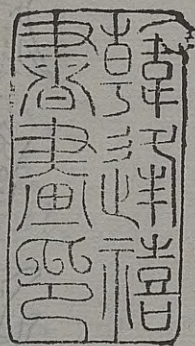 韓逢禧
書畫印